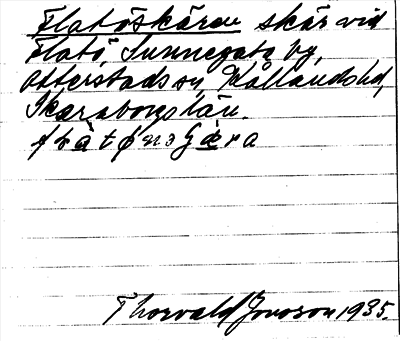 Flatöskären skär vid
Flatö, Sunnegata by,
Otterstads sn, Kållands hd,
Skaraborgs län.
Thorvald Jonsson 1935.